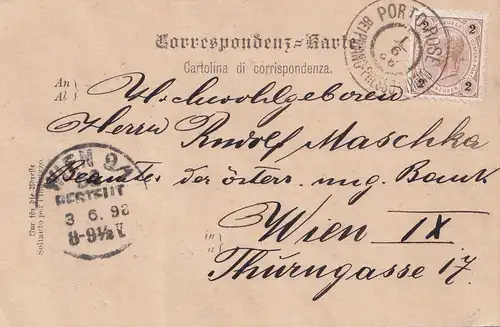 Correspondenz-Karte
Cartolina di corrispondenza.
An
Al
Hochwohlgeboren
Herrn Rudolf Maschka
Beamter der österr. ung. Bank
in
a
Wien IX
Thurngasse 17.
Nur für die Adresse
Soltanto per l'indirizzo.
WIEN 9
BESTELLT
3 6. 98
PORTOROSE
2
2